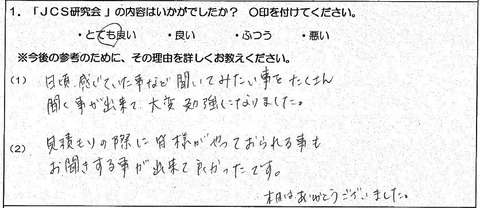 1. 「JCS研究会」の内容はいかがでしたか? ○印を付けてください。
・とても良い ・良い ・ふつう ・悪い
※今後の参考のために、その理由を詳しくお教えください。
(1) 日頃感じていた事など聞いてみたい事をたくさん
聞く事が出来て、大変勉強になりました。
(2) 見積もりの際に皆様がやっておられる事も
お聞きする事が出来て良かったです。
本日はありがとうございました。